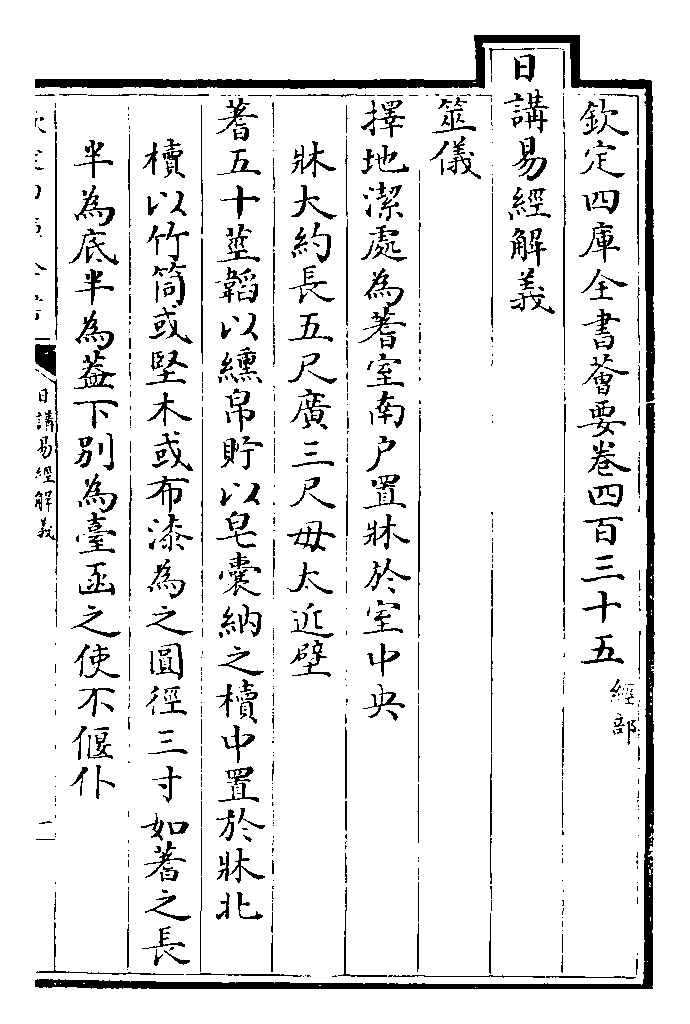 欽定四庫全書薈要卷四百三十五經部
日講易經解義
筮儀
擇地潔處為蓍室南戶置牀於室中央
牀大約長五尺廣三尺毋太近壁
蓍五十莖韜以纁帛貯以皂囊納之櫝中置於牀北
櫝以竹筒或堅木或布漆為之圓徑三寸如蓍之長
半為底半為葢下別為臺函之使不偃仆
日講易經解義
一